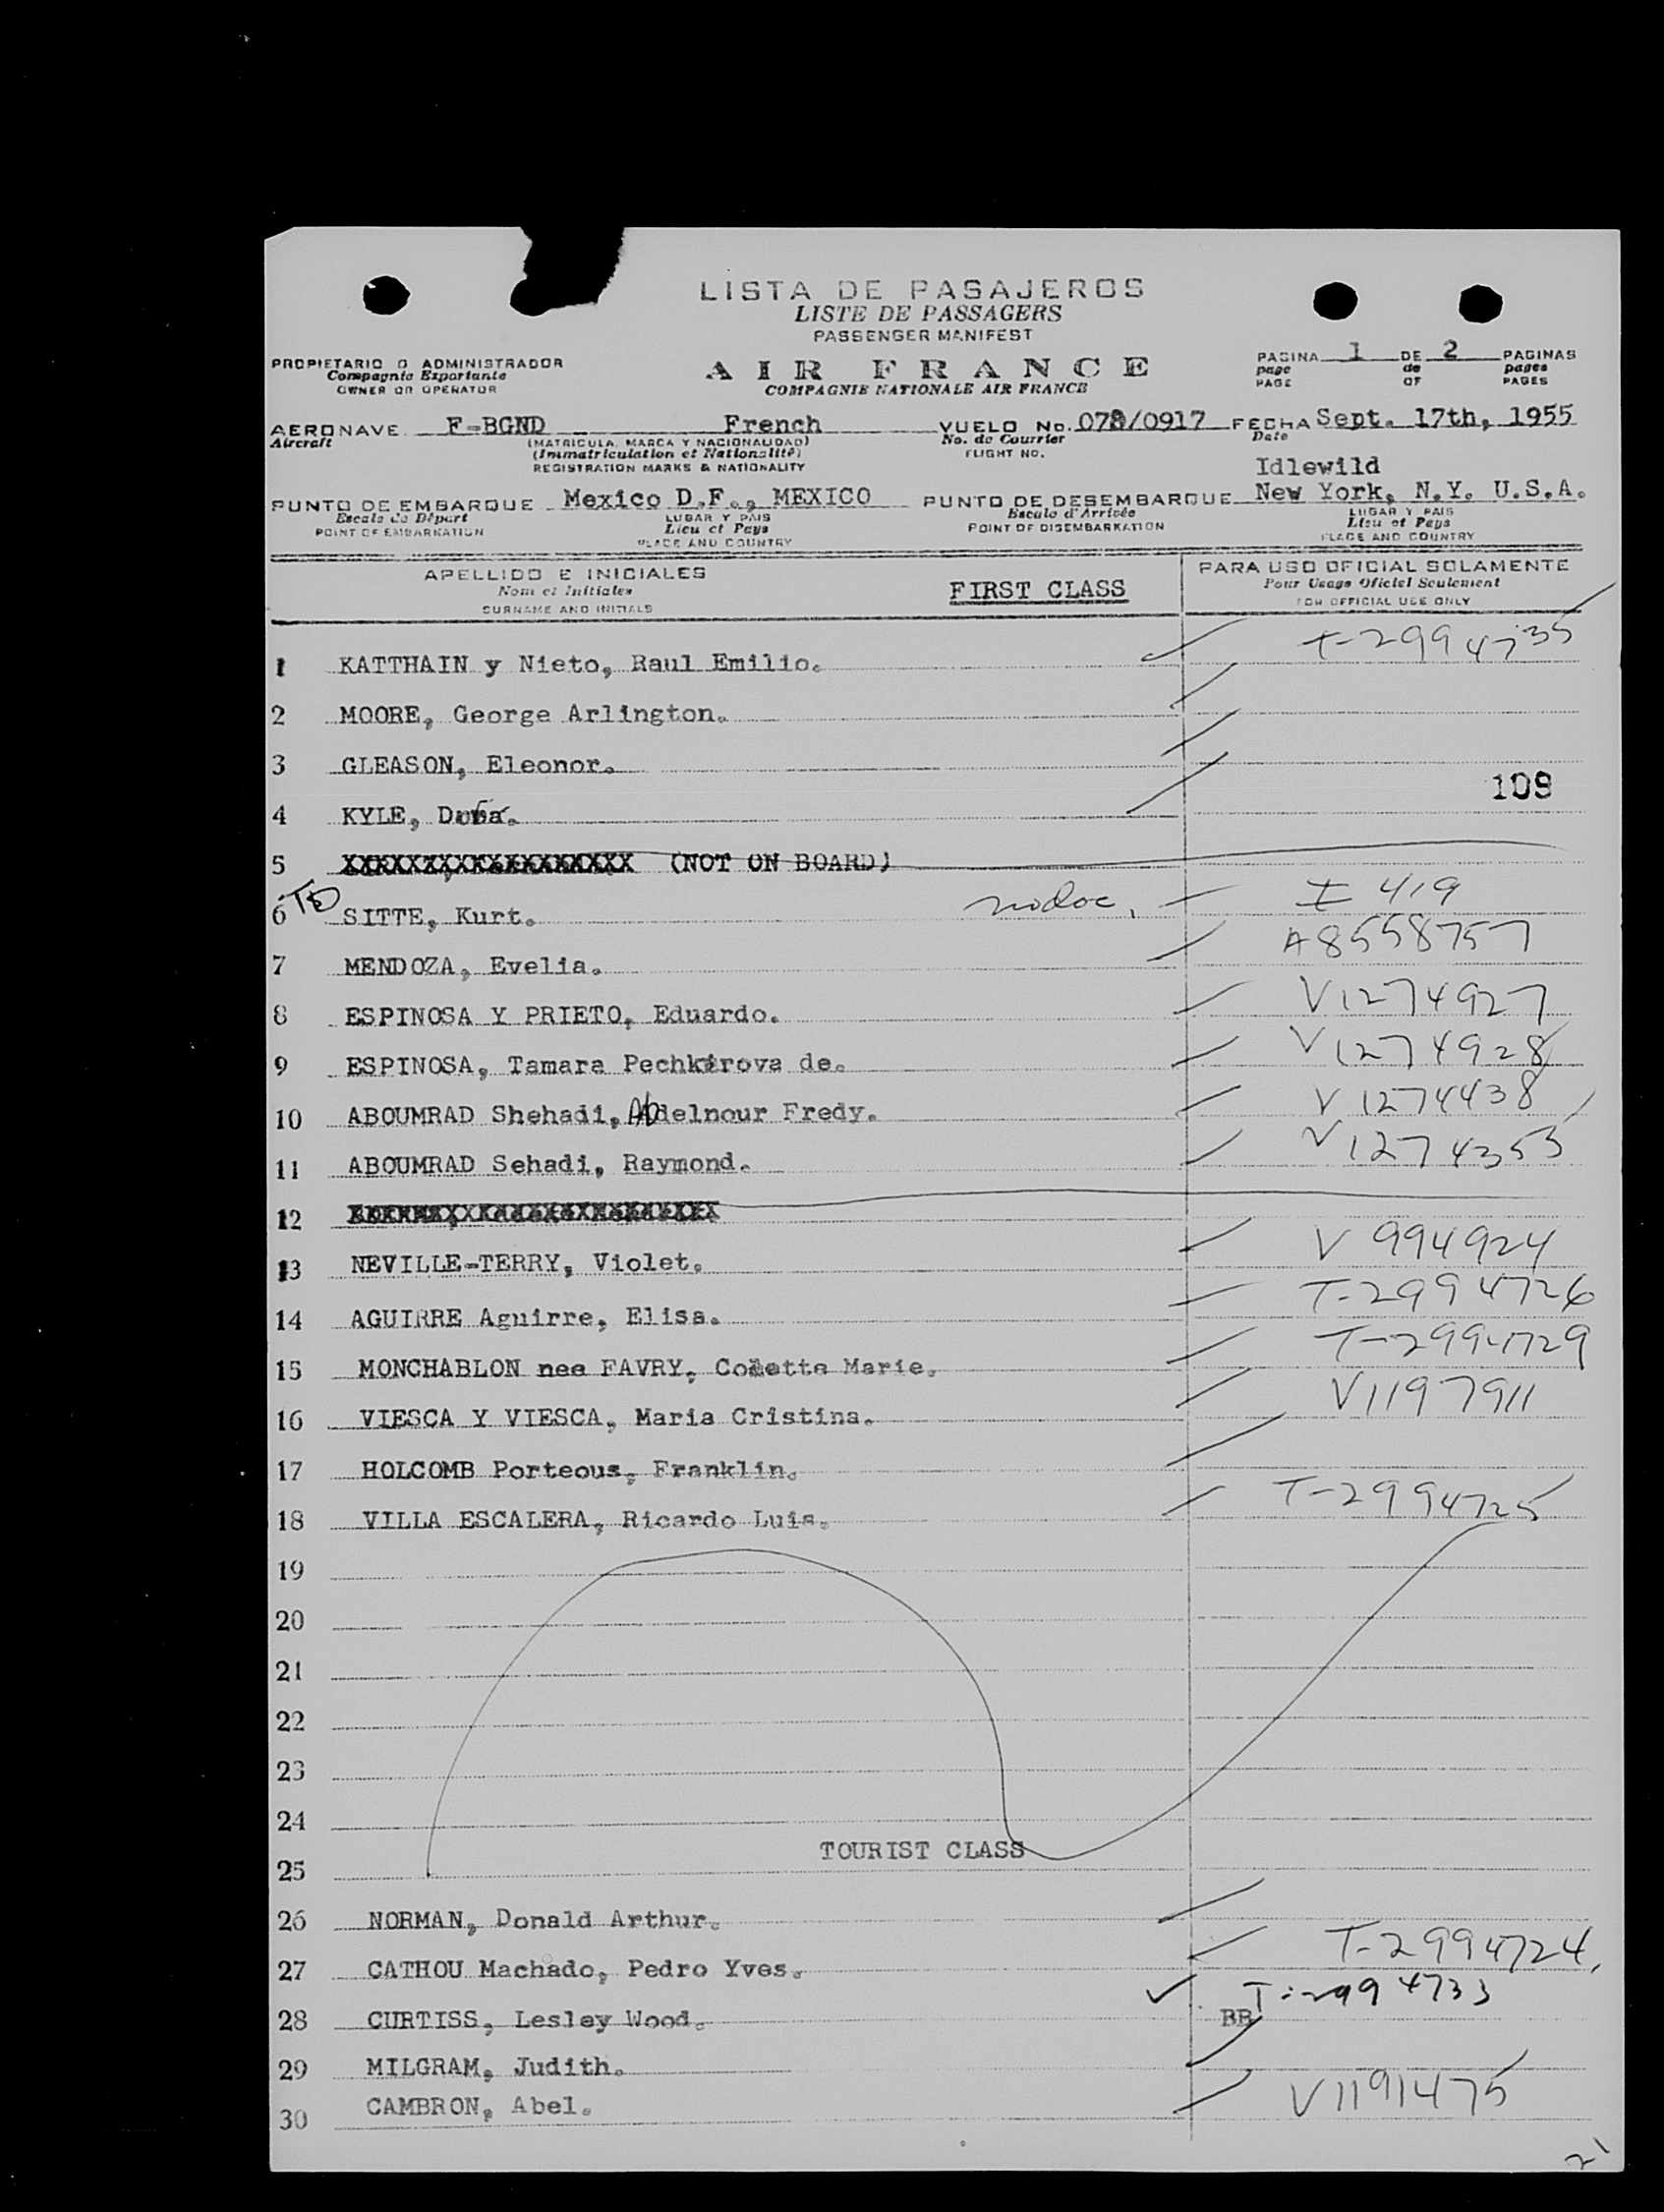 LISTA DE PASAJEROS
LISTE DE PASSAGERS
PASSENGER MANIFEST
PROPIETARIO O ADMINISTRADOR
Compagnie Exportante
OWNER OR OPERATOR
AIR FRANCE
COMPAGNIE NATIONALE AIR FRANCE
PAGINA 1 DE 2 PAGINAS
page de pages
PAGE OF PAGES
AERONAVE F-BGND French VUELO No. 078/0917 FECHA Sept. 17th, 1955
Aircraft (MATRICULA, MARCA Y NACIONALIDAD) No. de Courrier Date
(Immatriculation et Nationalité) FLIGHT NO.
REGISTRATION MARKS & NATIONALITY
Idlewild
PUNTO DE EMBARQUE Mexico D.F., MEXICO PUNTO DE DESEMBARQUE New York, N.Y. U.S.A.
Escale de Départ LUGAR Y PAIS Escale d'Arrivée LUGAR Y PAIS
POINT OF EMBARKATION Lieu et Pays POINT OF DISEMBARKATION Lieu et Pays
PLACE AND COUNTRY PLACE AND COUNTRY
APELLIDO E INICIALES PARA USO OFICIAL SOLAMENTE
Nom et Initiales FIRST CLASS Pour Usage Oficiel Seulement
SURNAME AND INITIALS FOR OFFICIAL USE ONLY
1 KATTHAIN y Nieto, Raul Emilio. T-2994735
2 MOORE, George Arlington.
3 GLEASON, Eleonor.
109
4 KYLE,
5 (NOT ON BOARD)
6 TD SITTE, Kurt. no doc. I 419
7 MENDOZA, Evelia. A8558757
8 ESPINOSA Y PRIETO, Eduardo. V1274927
9 ESPINOSA, Tamara Pechkirova de. V1274928
10 ABOUMRAD Shehadi, Abdelnour Fredy. V 1274438
11 ABOUMRAD Sehadi, Raymond. V1274353
12
13 NEVILLE-TERRY, Violet. V 994924
14 AGUIRRE Aguirre, Elisa. T-2994726
15 MONCHABLON nee FAVRY, Colette Marie. T-2994729
16 VIESCA Y VIESCA, Maria Cristina. V1197911
17 HOLCOMB Porteous, Franklin.
18 VILLA ESCALERA, Ricardo Luis. T-2994725
19
20
21
22
23
24
TOURIST CLASS
25
26 NORMAN, Donald Arthur.
27 CATHOU Machado, Pedro Yves. T-2994724
28 CURTISS, Lesley Wood. BB T-2994733
29 MILGRAM, Judith.
30 CAMBRON, Abel. V1191475
21